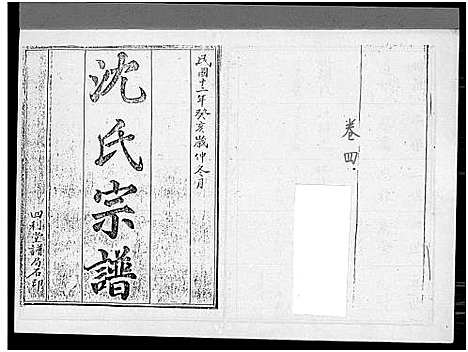 卷四
民國十二年癸亥歲仲冬月
沈氏宗譜
四利堂譜局石印